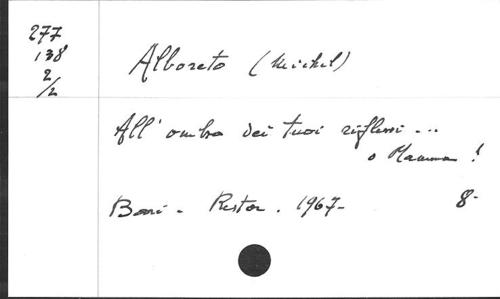 277
138
2/2
Alboreto (Michel)
All'ombra dei tuoi riflessi...
o Mamma!
Bari - Resta. 1967-
8-